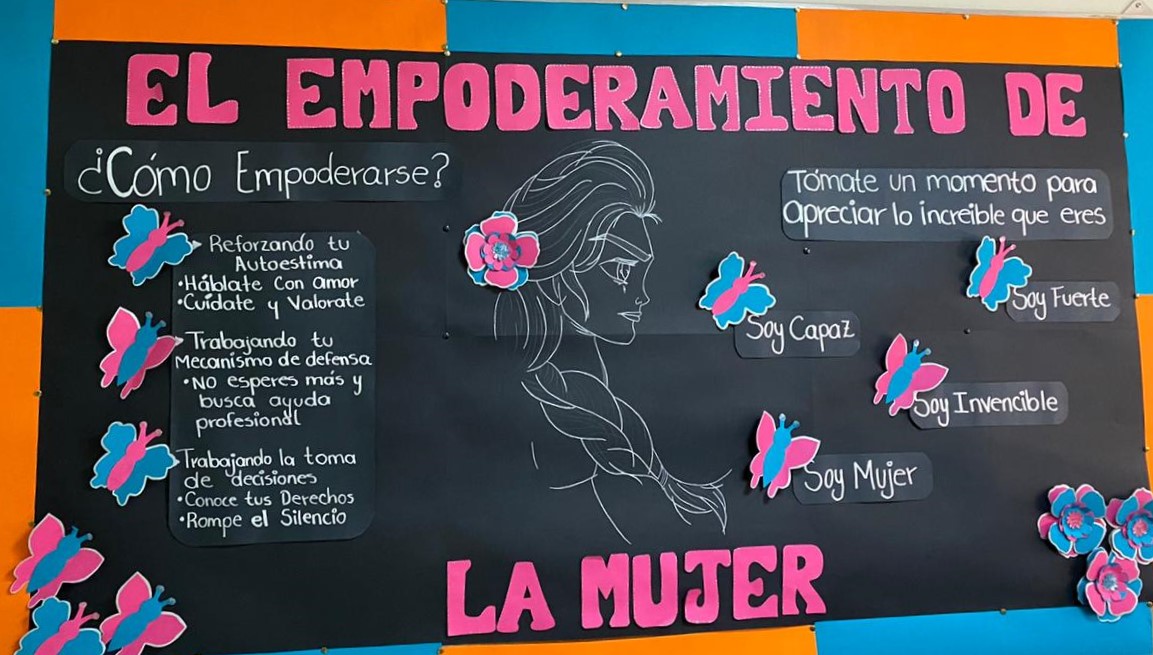 EL EMPODERAMIENTO DE
LA MUJER
¿Cómo Empoderarse?
Reforzando tu
Autoestima
•Háblate con amor
•Cuídate y Valorate
Trabajando tu
Mecanismo de defensa
•No esperes más y
busca ayuda
profesional
Trabajando la toma
de decisiones
•Conoce tus Derechos
•Rompe el Silencio
Tómate un momento para
apreciar lo increíble que eres
Soy Fuerte
Soy Capaz
Soy Invencible
Soy Mujer